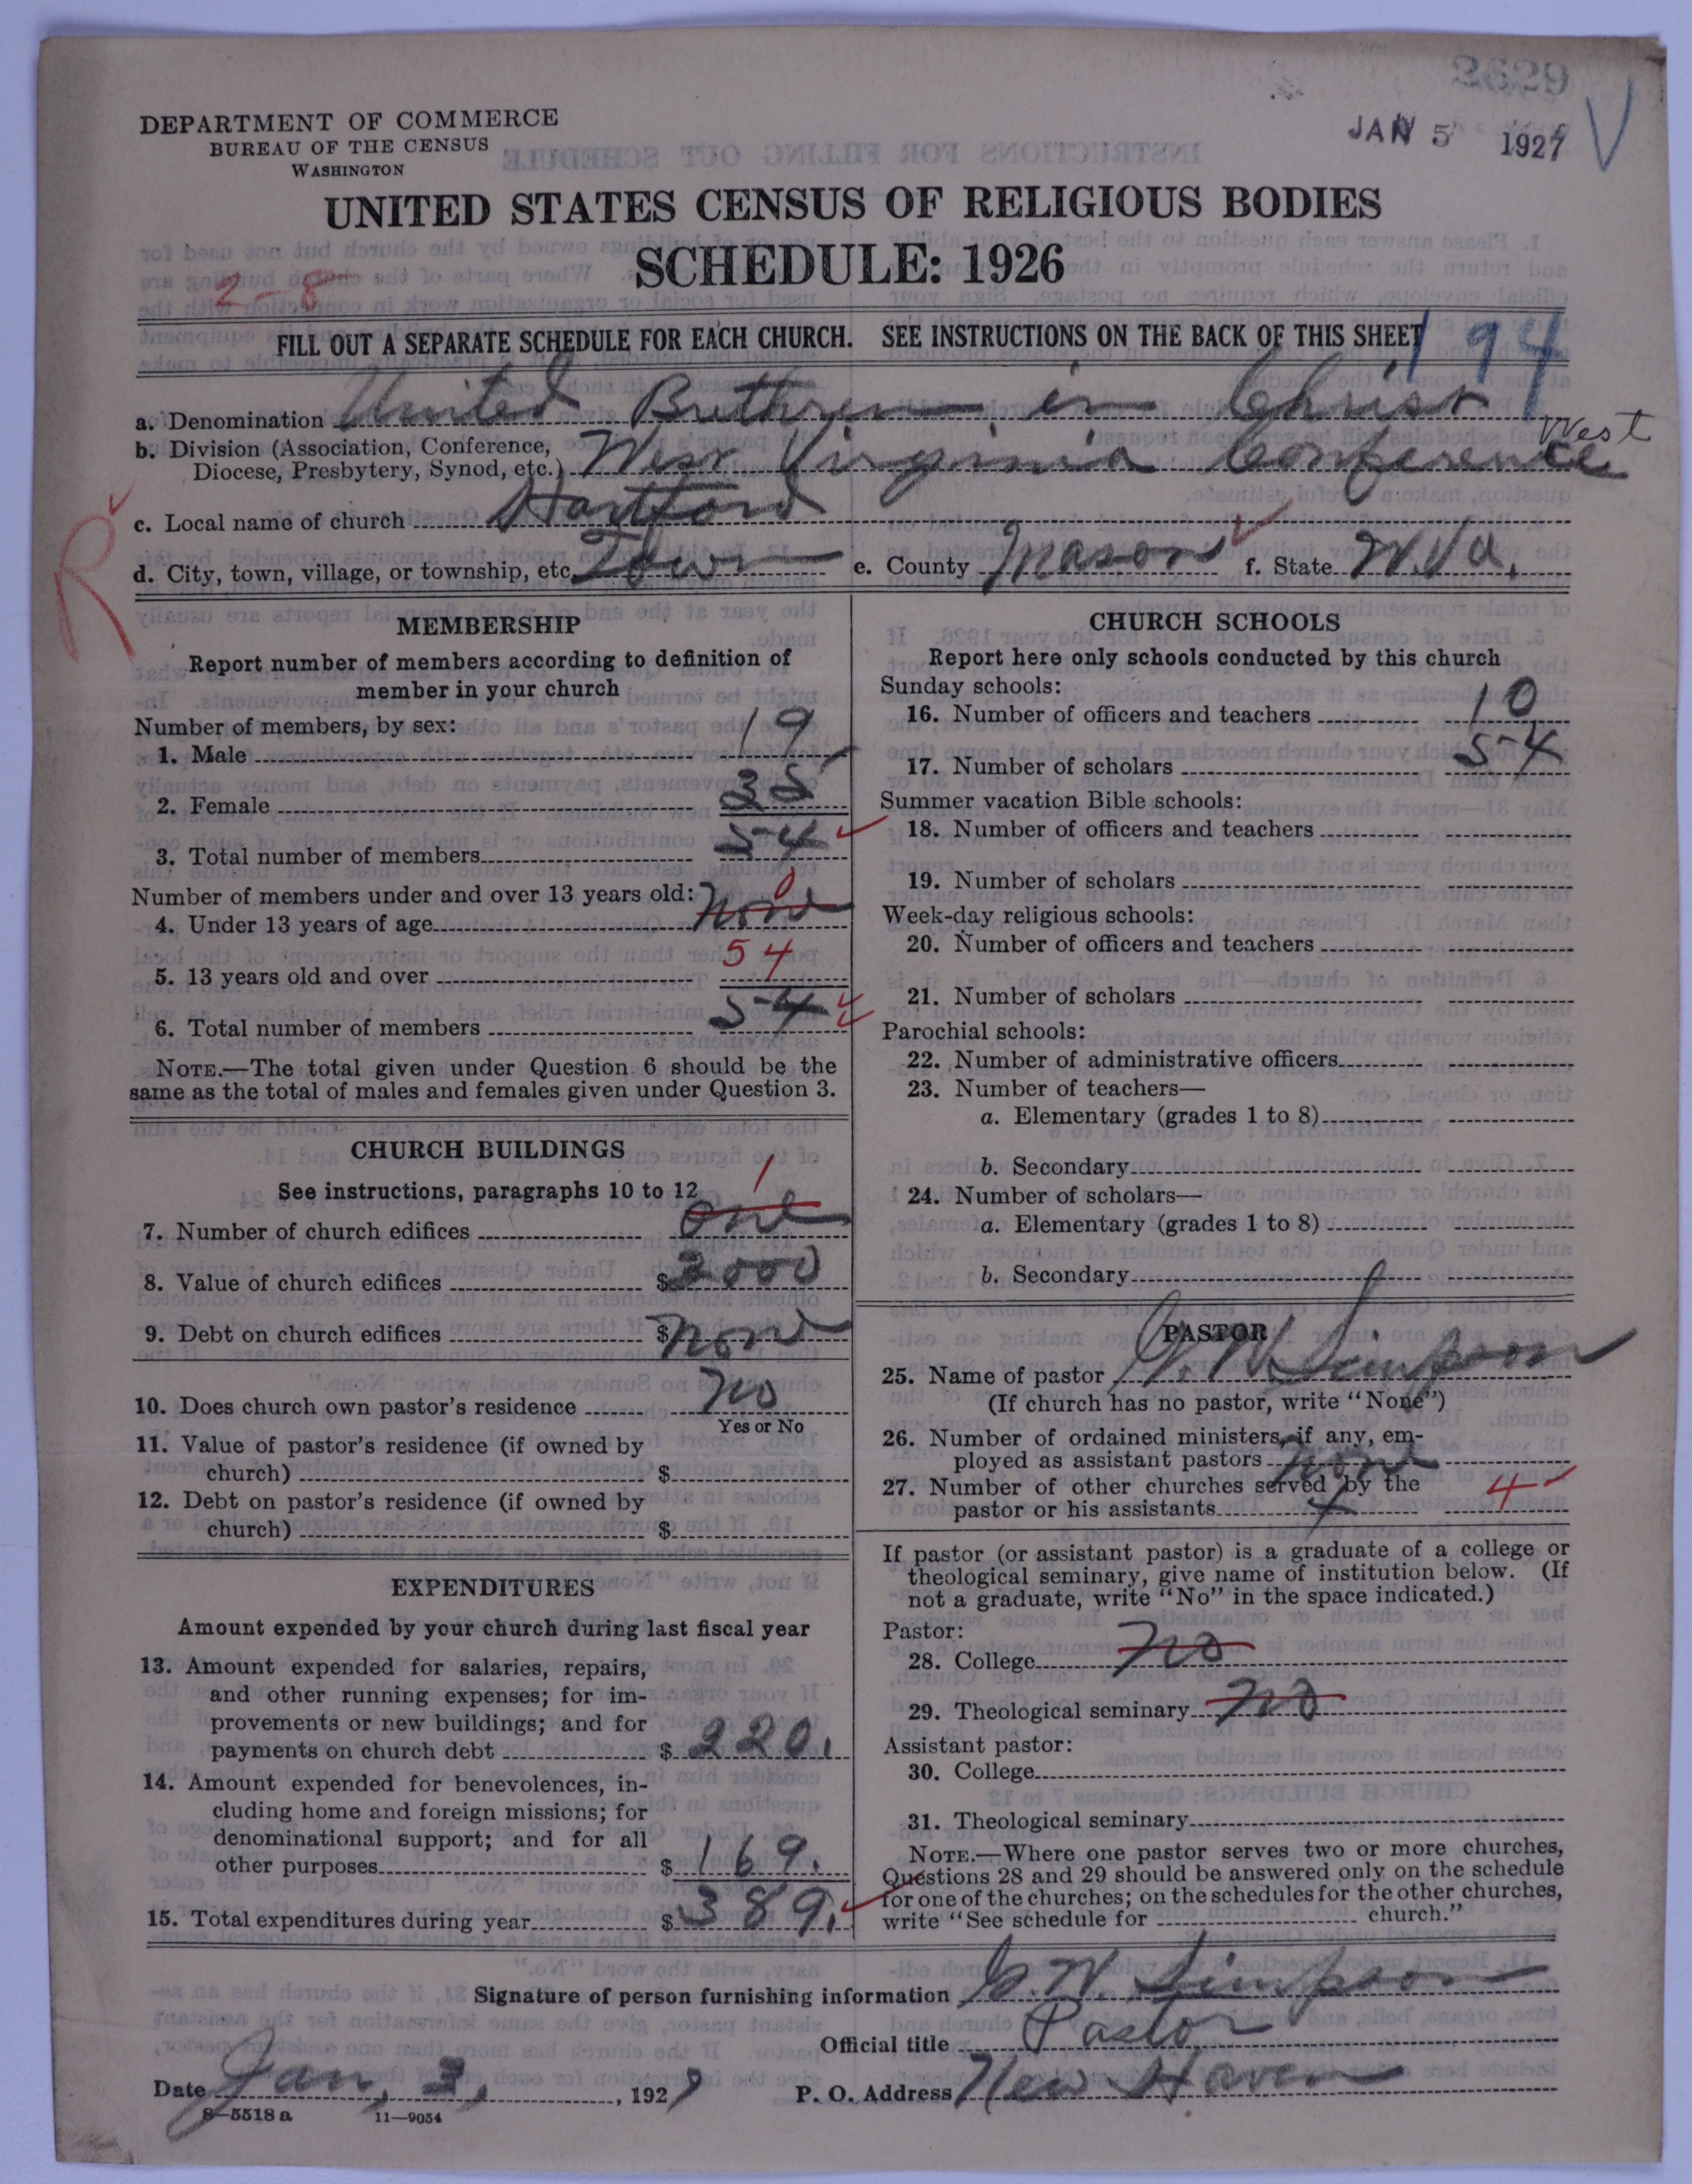 2629
DEPARTMENT OF COMMERCE
BUREAU OF THE CENSUS
WASHINGTON
JAN 5 1927
UNITED STATES CENSUS OF RELIGIOUS BODIES
SCHEDULE: 1926
2-8
FILL OUT A SEPARATE SCHEDULE FOR EACH CHURCH. SEE INSTRUCTIONS ON THE BACK OF THIS SHEET
194
a. Denomination United Brethren in Christ
b. Division (Association, Conference, Diocese, Presbytery, Synod, etc.) West Virginia Conference West
R
c. Local name of church Hartford
d. City, town, village, or township, etc. Town e. County Mason f. State W. Va.
MEMBERSHIP
Report number of members according to definition of
member in your church
Number of members, by sex:
1. Male 19
2. Female 35
3. Total number of members 54
Number of members under and over 13 years old:
4. Under 13 years of age None 0
5. 13 years old and over 54
6. Total number of members 54
NOTE.—The total given under Question 6 should be the
same as the total of males and females given under Question 3.
CHURCH BUILDINGS
See instructions, paragraphs 10 to 12
7. Number of church edifices one 1
8. Value of church edifices $ 2000
9. Debt on church edifices $ None
10. Does church own pastor's residence No
Yes or No
11. Value of pastor's residence (if owned by
church) $
12. Debt on pastor's residence (if owned by
church) $
EXPENDITURES
Amount expended by your church during last fiscal year
13. Amount expended for salaries, repairs,
and other running expenses; for im-
provements or new buildings; and for
payments on church debt $ 220.
14. Amount expended for benevolences, in-
cluding home and foreign missions; for
denominational support; and for all
other purposes $ 169.
15. Total expenditures during year $ 389.
CHURCH SCHOOLS
Report here only schools conducted by this church
Sunday schools:
16. Number of officers and teachers 10
17. Number of scholars 54
Summer vacation Bible schools:
18. Number of officers and teachers
19. Number of scholars
Week-day religious schools:
20. Number of officers and teachers
21. Number of scholars
Parochial schools:
22. Number of administrative officers
23. Number of teachers—
a. Elementary (grades 1 to 8)
b. Secondary
24. Number of scholars—
a. Elementary (grades 1 to 8)
b. Secondary
PASTOR
25. Name of pastor G. W. Simpson
(If church has no pastor, write "None")
26. Number of ordained ministers, if any, em-
ployed as assistant pastors None
27. Number of other churches served by the
pastor or his assistants 4 4
If pastor (or assistant pastor) is a graduate of a college or
theological seminary, give name of institution below. (If
not a graduate, write "No" in the space indicated.)
Pastor:
28. College No
29. Theological seminary No
Assistant pastor:
30. College
31. Theological seminary
NOTE.—Where one pastor serves two or more churches,
Questions 28 and 29 should be answered only on the schedule
for one of the churches; on the schedules for the other churches,
write "See schedule for church."
Signature of person furnishing information G. W. Simpson
Official title Pastor
Date Jan, 3, 1927 P. O. Address New Haven
8—5518 a 11—9054